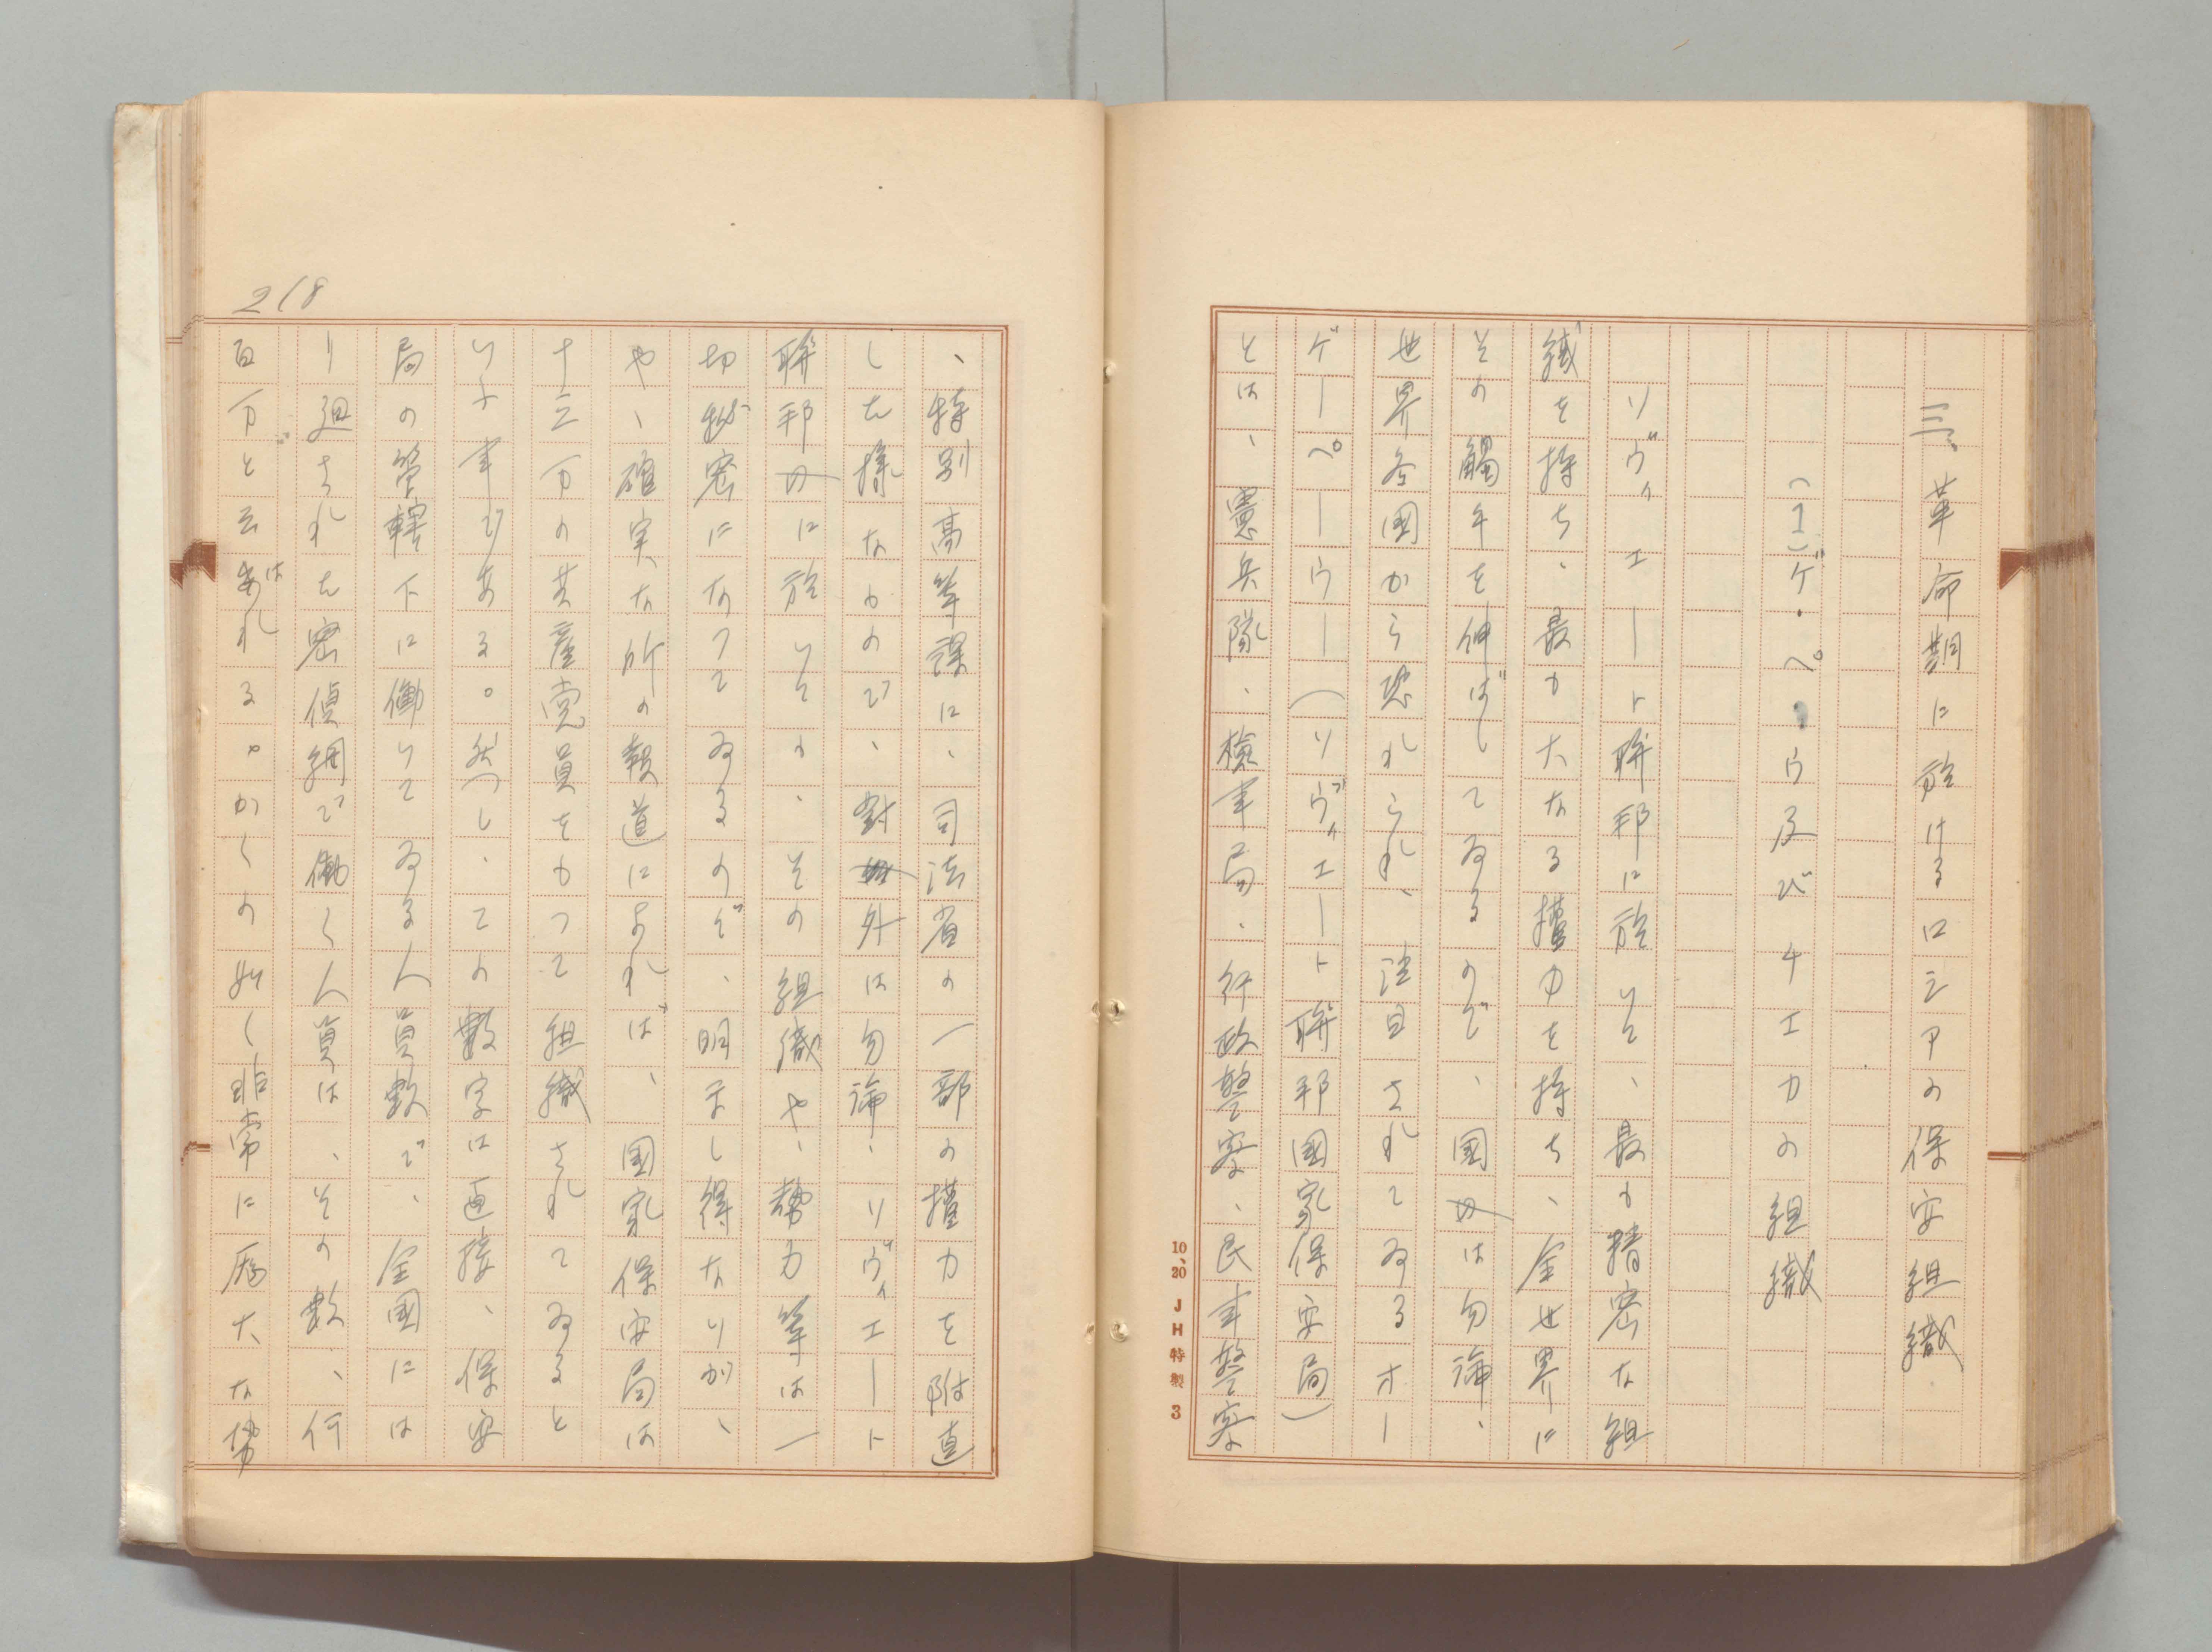 三、革命期に於けるロシアの保安組織
(1)ゲ・ペ・ウ及びチエカの組織
ソヴィエート聯邦に於いて、最も精密な組
織を持ち、最も大なる權力を持ち、全世界に
その觸手を伸ばしてゐるので、国は勿論、
世界各国から恐れられ、注目されてゐるオー
ゲーペーウー(ソヴィエート聯邦国家保安局)
とは、憲兵隊、檢事局、行政警察、民事警察
10、20 JH特製 3
218
、特別高等課に、司法省の一部の權力を附直
した樣なもので、對外は勿論、ソヴィエート
聯邦に於いても、その組織や、勢力等は一
切秘密になつてゐるので、明示し得ないが、
や、確実な所の報道によれば、国家保安局は
十三万の共產党員をもつて組織されてゐると
いふ事である。然し、この數字は直接、保安
局の管轄下に働いてゐる人員数で、全国には
り廻された密偵網で働く人員は、その数、何
百万と云はれる。かくの如く非常に厖大な勢